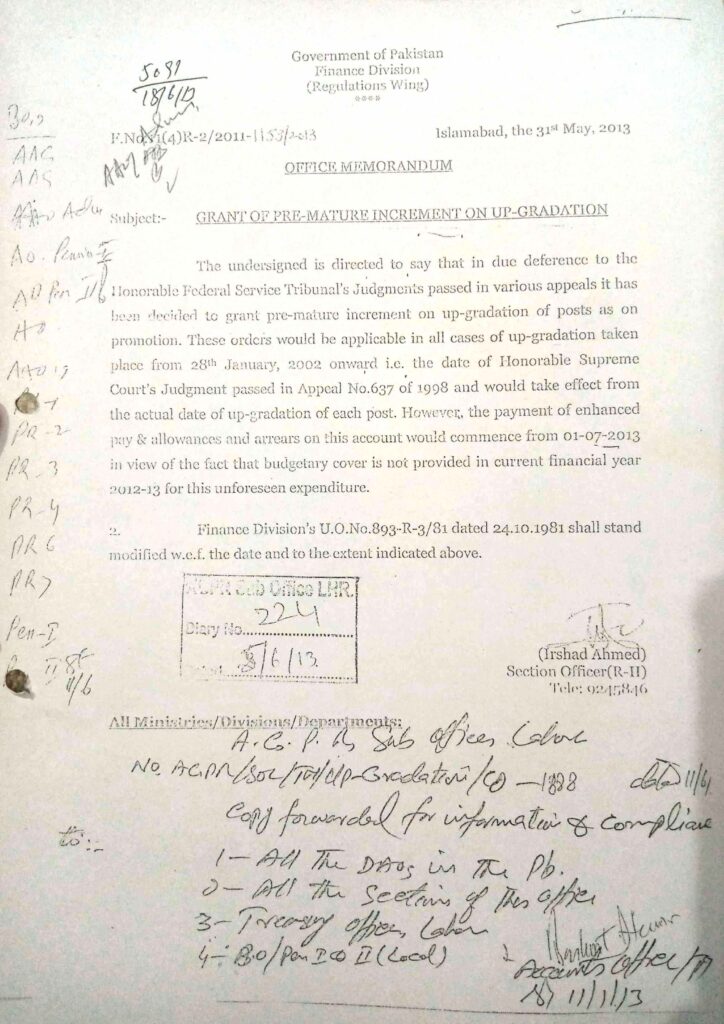 Government of Pakistan
Finance Division
(Regulations Wing)
****
5091
18/6/13
F.No. (4)R-2/2011-1153/2013
Islamabad, the 31st May, 2013
OFFICE MEMORANDUM
Subject:- GRANT OF PRE-MATURE INCREMENT ON UP-GRADATION
The undersigned is directed to say that in due deference to the
Honorable Federal Service Tribunal's Judgments passed in various appeals it has
been decided to grant pre-mature increment on up-gradation of posts as on
promotion. These orders would be applicable in all cases of up-gradation taken
place from 28th January, 2002 onward i.e. the date of Honorable Supreme
Court's Judgment passed in Appeal No.637 of 1998 and would take effect from
the actual date of up-gradation of each post. However, the payment of enhanced
pay & allowances and arrears on this account would commence from 01-07-2013
in view of the fact that budgetary cover is not provided in current financial year
2012-13 for this unforeseen expenditure.
2. Finance Division's U.O.No.893-R-3/81 dated 24.10.1981 shall stand
modified w.e.f. the date and to the extent indicated above.
AAG
AAG
PR-2
PR-3
PR-4
PR 6
PR 7
Pen-I
II
11/6
Sub Office LHR.
Diary No. 224
/6/13
(Irshad Ahmed)
Section Officer(R-II)
Tele: 9245846
All Ministries/Divisions/Departments:
A.G.P.R Sub Office Lahore
No. AGPR/ /Up-Gradation/ -1898 dated 11/6
Copy forwarded for information & compliance
to:-
1- All the DAOs in the Pb.
2- All the Section of this office
3- Treasury Office Lahore
4- BO/Pen I & II (Local)
Accounts Officer